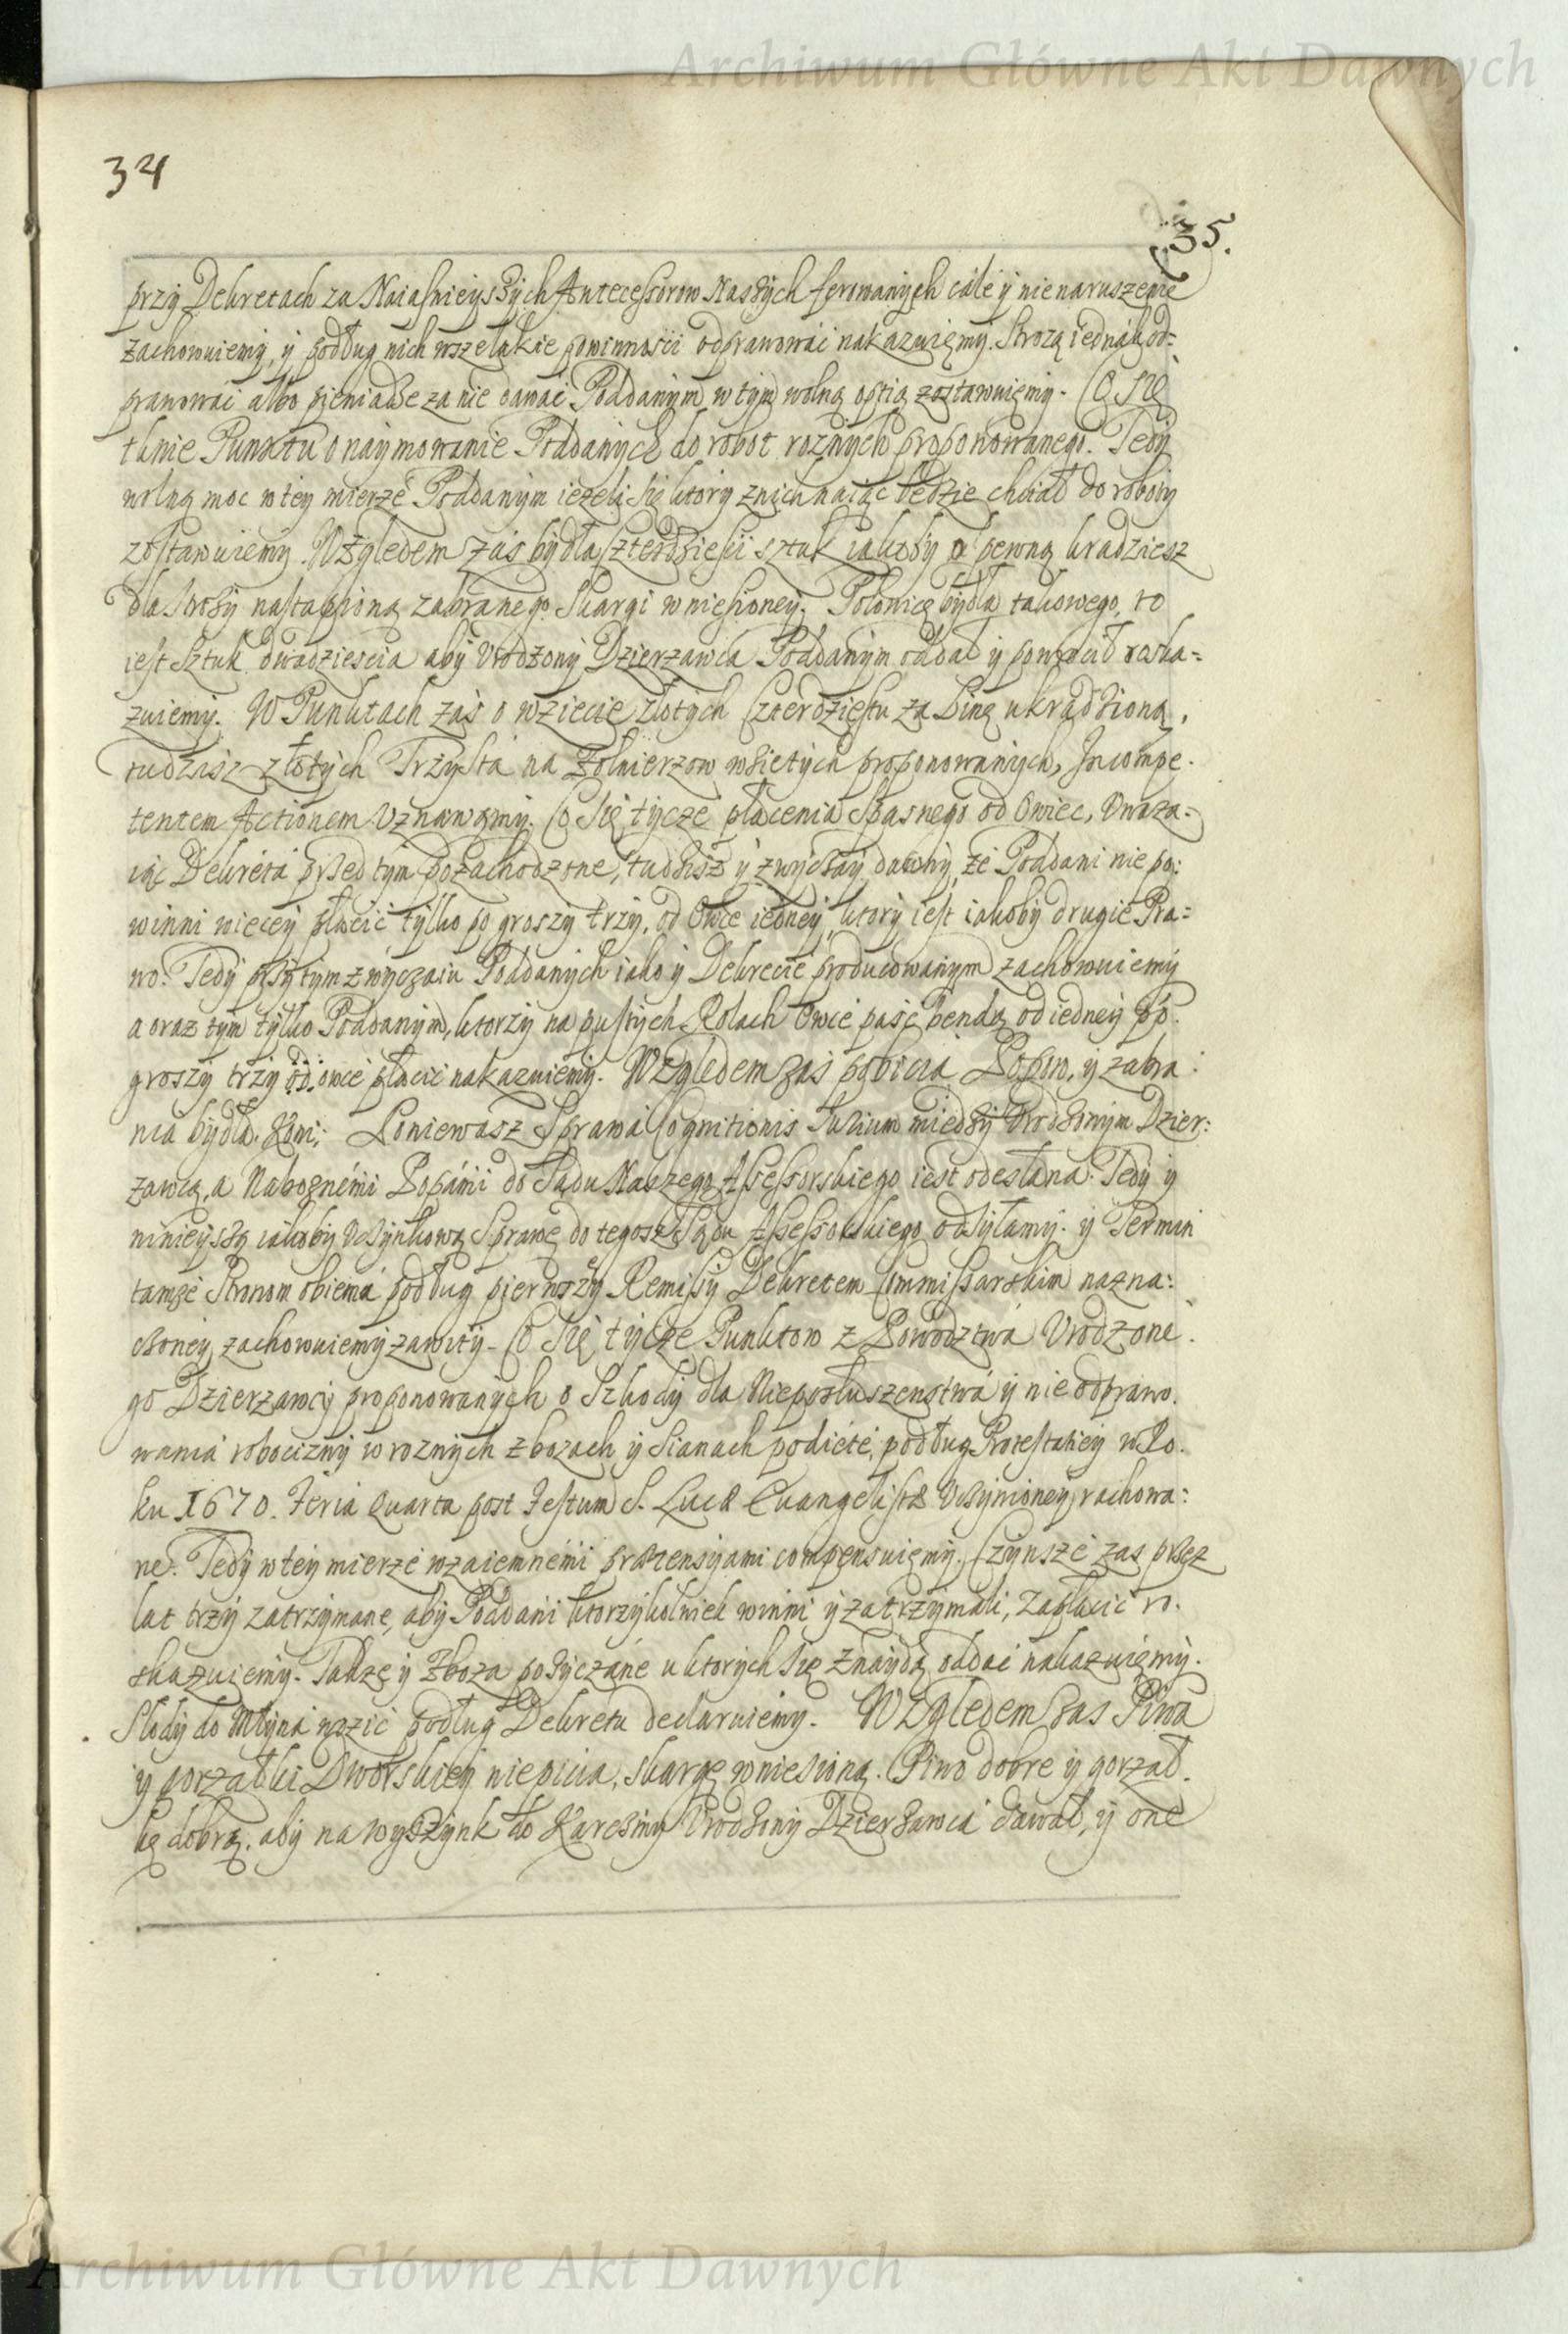 Archiwum Główne Akt Dawnych
34
35.
przy Dekretach za Naiasnieyszych Antecessorow Naszych ferowanych cale y nienaruszenie
zachowuiemy, y podług nich wszelakie powinności odprawować nakazuięmy. Strożą iednak od=
prawować albo pieniadze za nie dawać Poddanym w tym wolną optią zostawuięmy. Co się
tknie Punktu o naymowanie Poddanych do robot roznych proponowanego. Tedy
wolną moc w tey mierze Poddanym ieżeli się ktory z nich naiąc będzie chciał do roboty
zostawuiemy. Względem zaś bydła Czterdziesci sztuk iakoby o pewną kradziesz
dla Srosy nastąpioną zabranego Skargi wniesioney. Połowicę bydła takowego, to
iest Sztuk dwadziescia aby Urodzony Dzierzawca Poddanym oddał y powrocił roska=
zuiemy. W Punktach zaś o wzięcie złotych Czterdziestu za Linę ukradzioną,
tudziesz złotych Trzysta na Zolnierzow wziętych proponowanych, Incompe.
tentem Actionem Uznawamy. Co się tycze płacenia Spasnego od Owiec, Uwaza=
iąc Dekreta przed tym pozachodzone, tudzisz y zwyczay dawny, że Poddani nie po:
winni więcey płacić tylko po groszy trzy, od Owce iedney, ktory iest iakoby drugie Pra=
wo. Tedy przy tym zwyczaiu Poddanych iako y Dekrecie producowanym zachowuiemy
a oraz tym tylko Poddanym, ktorzy na pustych Rolach Owce paść będą od iedney po
groszy trzy od owce płacić nakazuiemy. Względem zaś pobicia Popow, y zabra:
nia bydła, Koni; Poniewasz Sprawa Cognitionis Iurium miedzy Urodzonym Dzier:
zawcą, a Naboznemi Popami do Sądu Naszego Assessorskiego iest odesłana: Tedy y
ninieyszą iakoby Uczynkową Sprawę do tegosz Sądu Assessorskiego odsyłamy. y Termin
tamże Stronom obiema podług pierwszey Remissy Dekretem Commissarskim nazna:
czoney zachowuiemy zawity. Co się tycze Punktow z Powodztwa Urodzone.
go Dzierzawcy proponowanych o Szkody dla Nieposłuszenstwa y nie odprawo.
wania robocizny w roznych zbozach y sianach podięte, podług Protestatiey w Ro.
ku 1670. Feria Quarta post Festum S. Lucæ Euangelistæ Uczynioney rachowa:
ne: Tedy w tey mierze wzaiemnemi prætensyami compensuięmy. Czynsze zas przez
lat trzy zatrzymane, aby Poddani ktorzykolwiek winni y zatrzymali, Zapłacić ro.
skazuiemy. Takze y Zboza pożyczane u ktorych się znaydą oddać nakazuięmy.
Słody do Młyna wozić podług Dekretu declaruiemy. Względem zas Piwa
y gorzałki Dworskiey niepicia, skargę wniesioną. Piwo dobre y gorzał.
kę dobrą, aby na wyszynk do Karczmy Urodzony Dzierzawca dawał, y one
Archiwum Główne Akt Dawnych